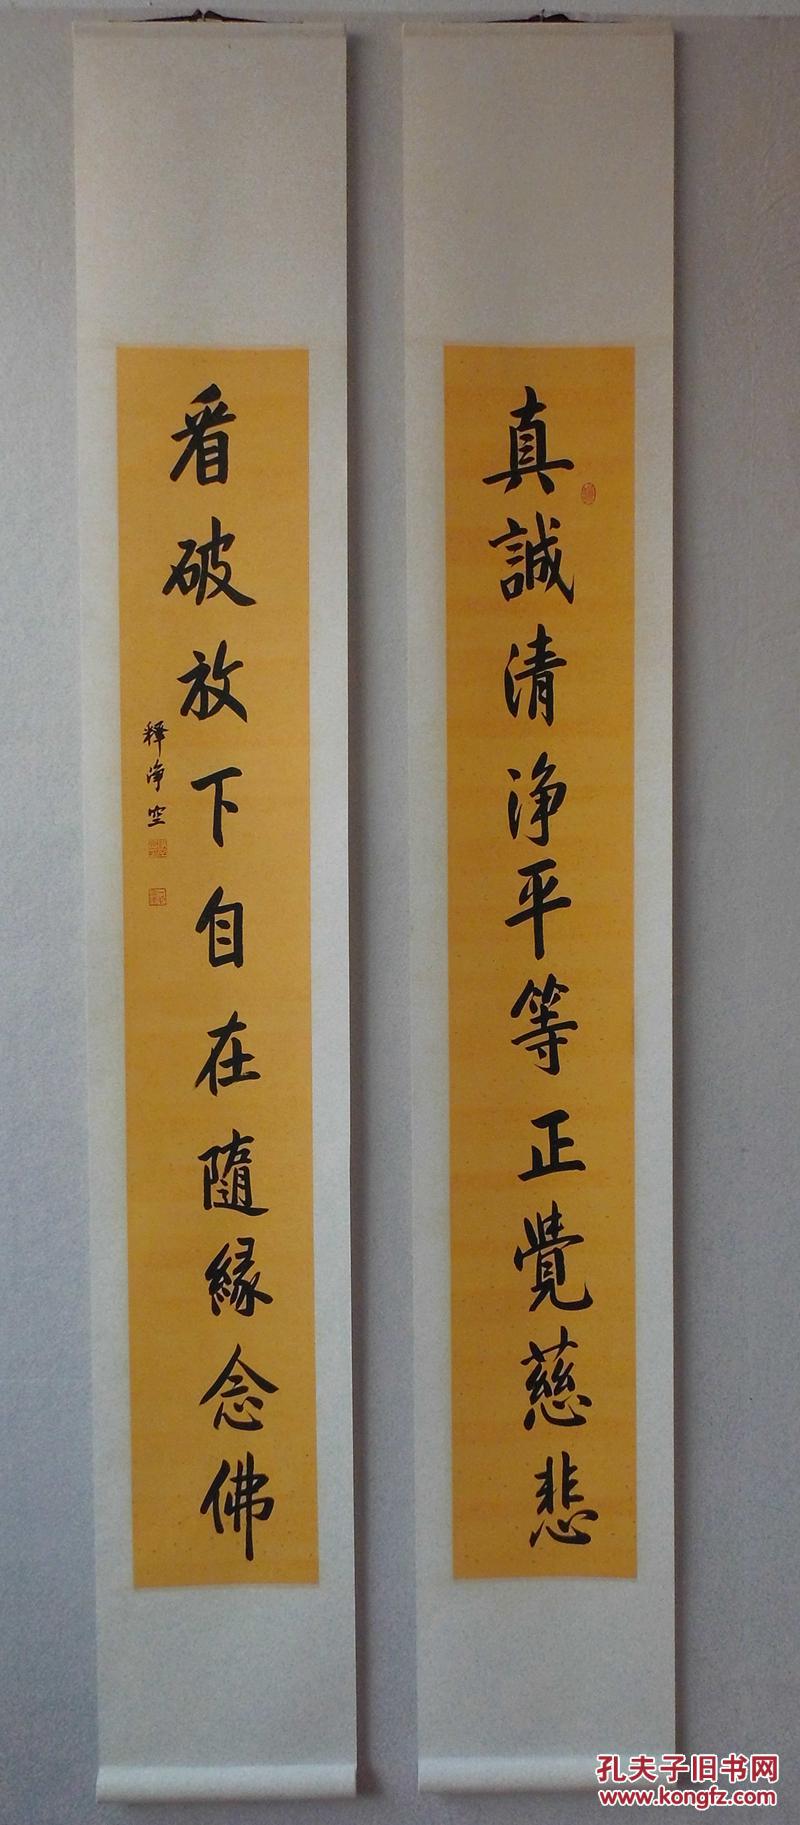 真誠清淨平等正覺慈悲
看破放下自在隨緣念佛
釋淨空
孔夫子旧书网
www.kongfz.com